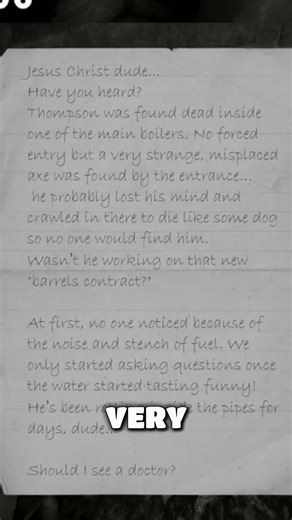 Jesus Christ dude...
Have you heard?
Thompson was found dead inside
one of the main boilers. No forced
entry but a very strange, misplaced
axe was found by the entrance...
he probably lost his mind and
crawled in there to die like some dog
so no one would find him.
Wasn't he working on that new
"barrels contract?"
At first, no one noticed because of
the noise and stench of fuel. We
only started asking questions once
the water started tasting funny!
He's been the pipes for
days, dude...
VERY
Should I see a doctor?